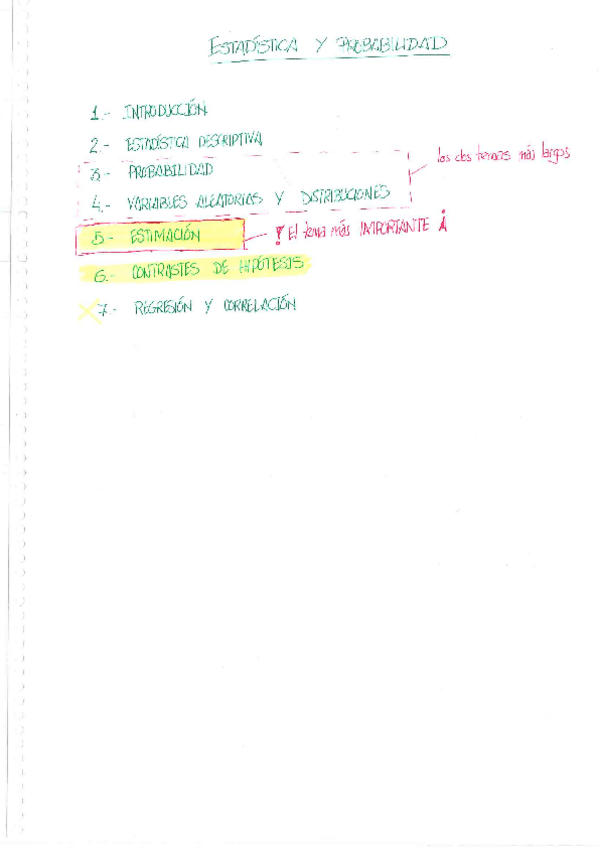 ESTADÍSTICA Y PROBABILIDAD
1.- INTRODUCCIÓN
2.- ESTADÍSTICA DESCRIPTIVA
3.- PROBABILIDAD
los dos temas más largos
4.- VARIABLES ALEATORIAS Y DISTRIBUCIONES
5.- ESTIMACIÓN
! El tema más IMPORTANTE ¡
6.- CONTRASTES DE HIPÓTESIS
7.- REGRESIÓN Y CORRELACIÓN